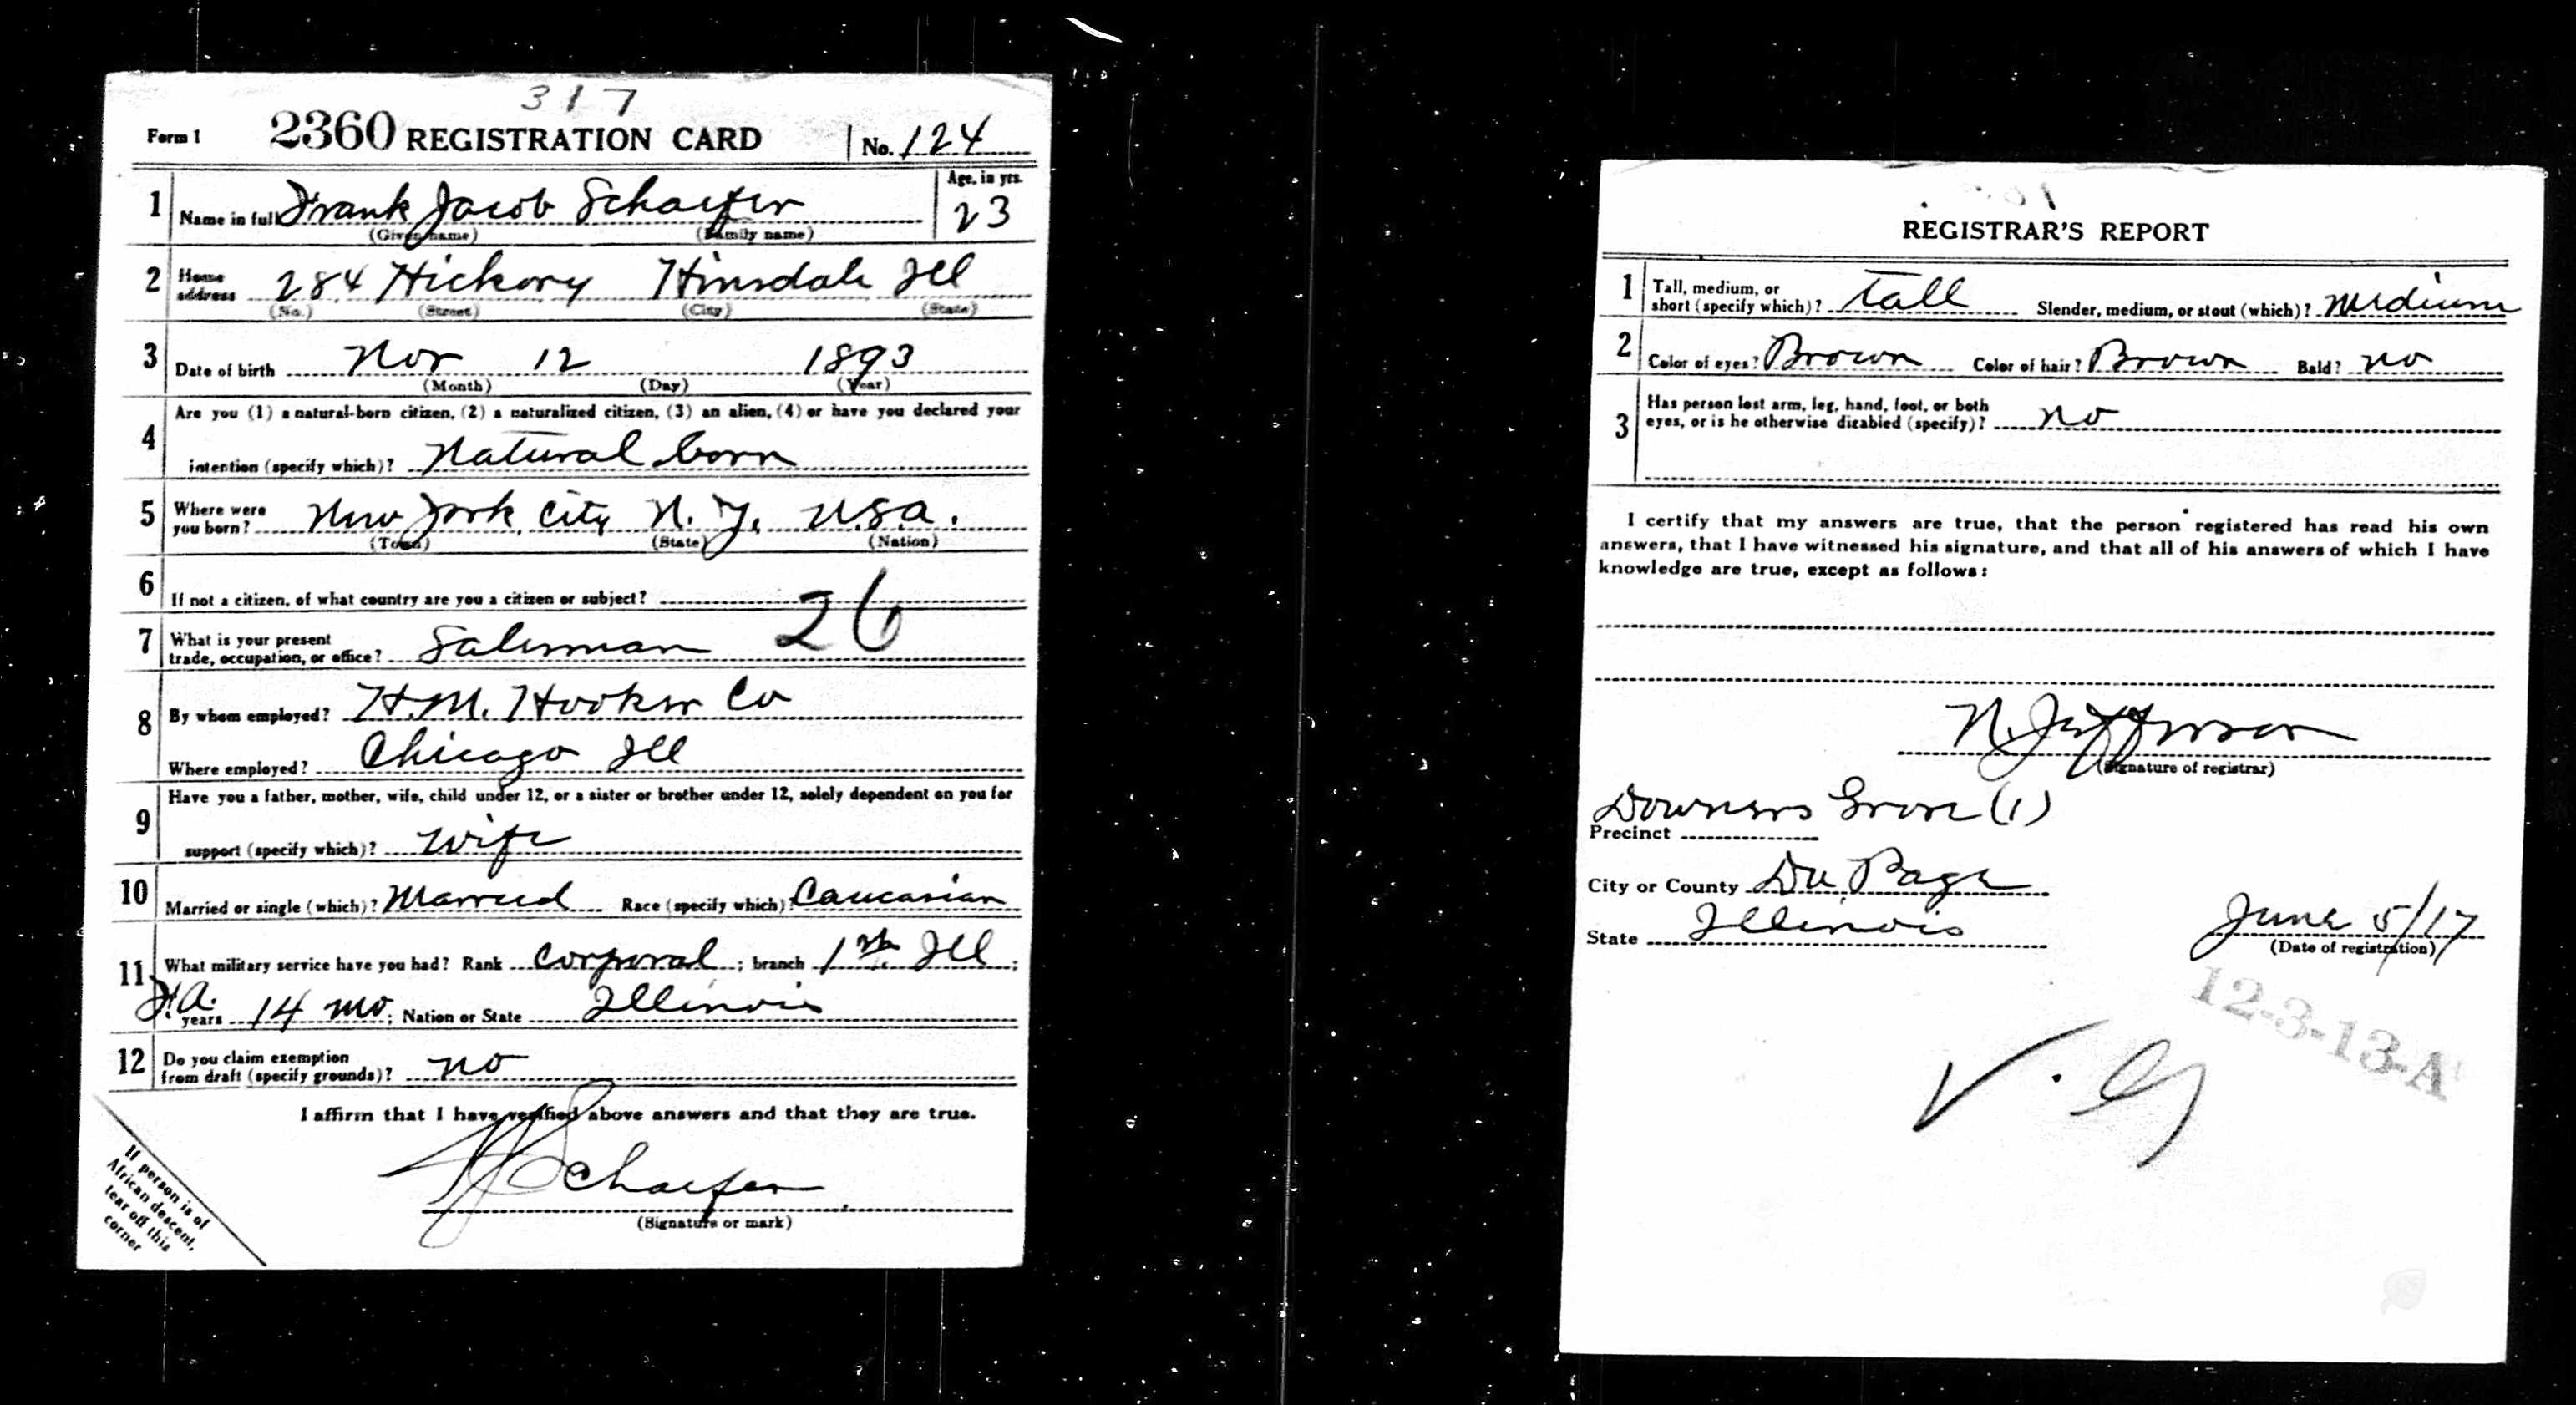 317
Form 1 2360 REGISTRATION CARD No. 124
1 Name in full Frank Jacob Schaefer Age, in yrs. 23
(Given name) (Family name)
2 Home address 284 Hickory Hinsdale Ill
(No.) (Street) (City) (State)
3 Date of birth Nov 12 1893
(Month) (Day) (Year)
Are you (1) a natural-born citizen, (2) a naturalized citizen, (3) an alien, (4) or have you declared your
4 intention (specify which)? Natural born
5 Where were you born? New York City N. Y. U.S.A.
(Town) (State) (Nation)
6 If not a citizen, of what country are you a citizen or subject?
26
7 What is your present trade, occupation, or office? Salesman
8 By whom employed? H.M. Hooker Co
Where employed? Chicago Ill
Have you a father, mother, wife, child under 12, or a sister or brother under 12, solely dependent on you for
9 support (specify which)? Wife
10 Married or single (which)? Married Race (specify which)? Caucasian
11 What military service have you had? Rank Corporal ; branch 1st Ill ;
F.A. years 14 mo ; Nation or State Illinois
12 Do you claim exemption from draft (specify grounds)? no
I affirm that I have verified above answers and that they are true.
FJ Schaefer
(Signature or mark)
If person is of
African descent,
tear off this
corner
REGISTRAR'S REPORT
1 Tall, medium, or short (specify which)? Tall Slender, medium, or stout (which)? Medium
2 Color of eyes? Brown Color of hair? Brown Bald? no
3 Has person lost arm, leg, hand, foot, or both
eyes, or is he otherwise disabled (specify)? no
I certify that my answers are true, that the person registered has read his own
answers, that I have witnessed his signature, and that all of his answers of which I have
knowledge are true, except as follows:
N. Jefferson
(Signature of registrar)
Downers Grove (1)
Precinct
City or County Du Page
State Illinois June 5/17
(Date of registration)
12-3-13-A